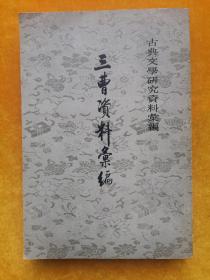 古典文學研究資料彙編
三曹資料彙編